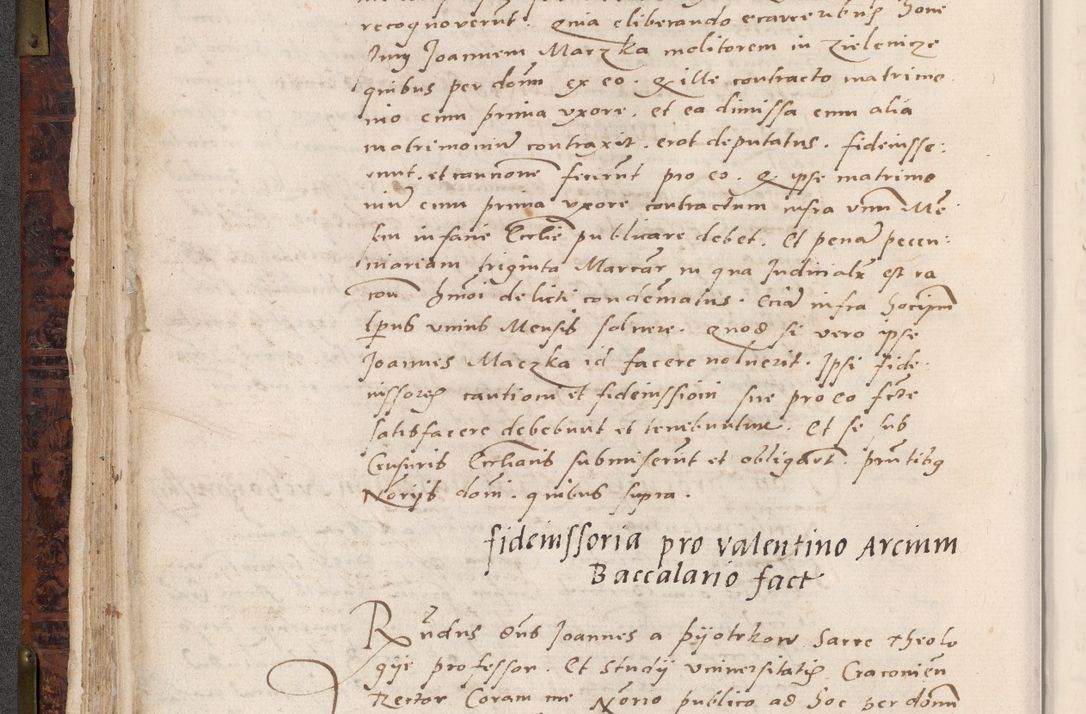 recognoverunt. Quia eliberando ecarceribus hone
Joannem Maczka molitorem in zielenicze
quibus per domn ex eo. q ille contracto matrimo
nio cum prima vxore. et ea dimissa cum alia
matrimoniu contraxit. erat deputatus. fideiusse:
runt. et caucionem fecerunt pro eo. q ipse matrimo
niu cum prima vxore contractum infra vnu Me
sem in facie Ecclie publicare debet. Et pena pecu:
niariam triginta Marcar in qua Judicialr est ra
cone hmoi delicti condematus. Ecia infra
tpus vnius Mensis soluere. Quod si vero ipse
Joannes Maczka id facere noluerit. Ipsi Fide
iussores cautioni et fideiussioni sue pro eo fcte
satisfacere debebunt et tenebuntur. Et se sub
Censuris Ecclianis submiserut et obligart. prntibq
Norijs domi. quibus supra.
fideiussoria pro valentino Arcium
Baccalario fact
Rndus dns Joannes a pijotrkow Sacre theolo
gije professor. Et Studij vniuersitatis Cracouien
Rector Coram me Norio publico ad hoc per domn